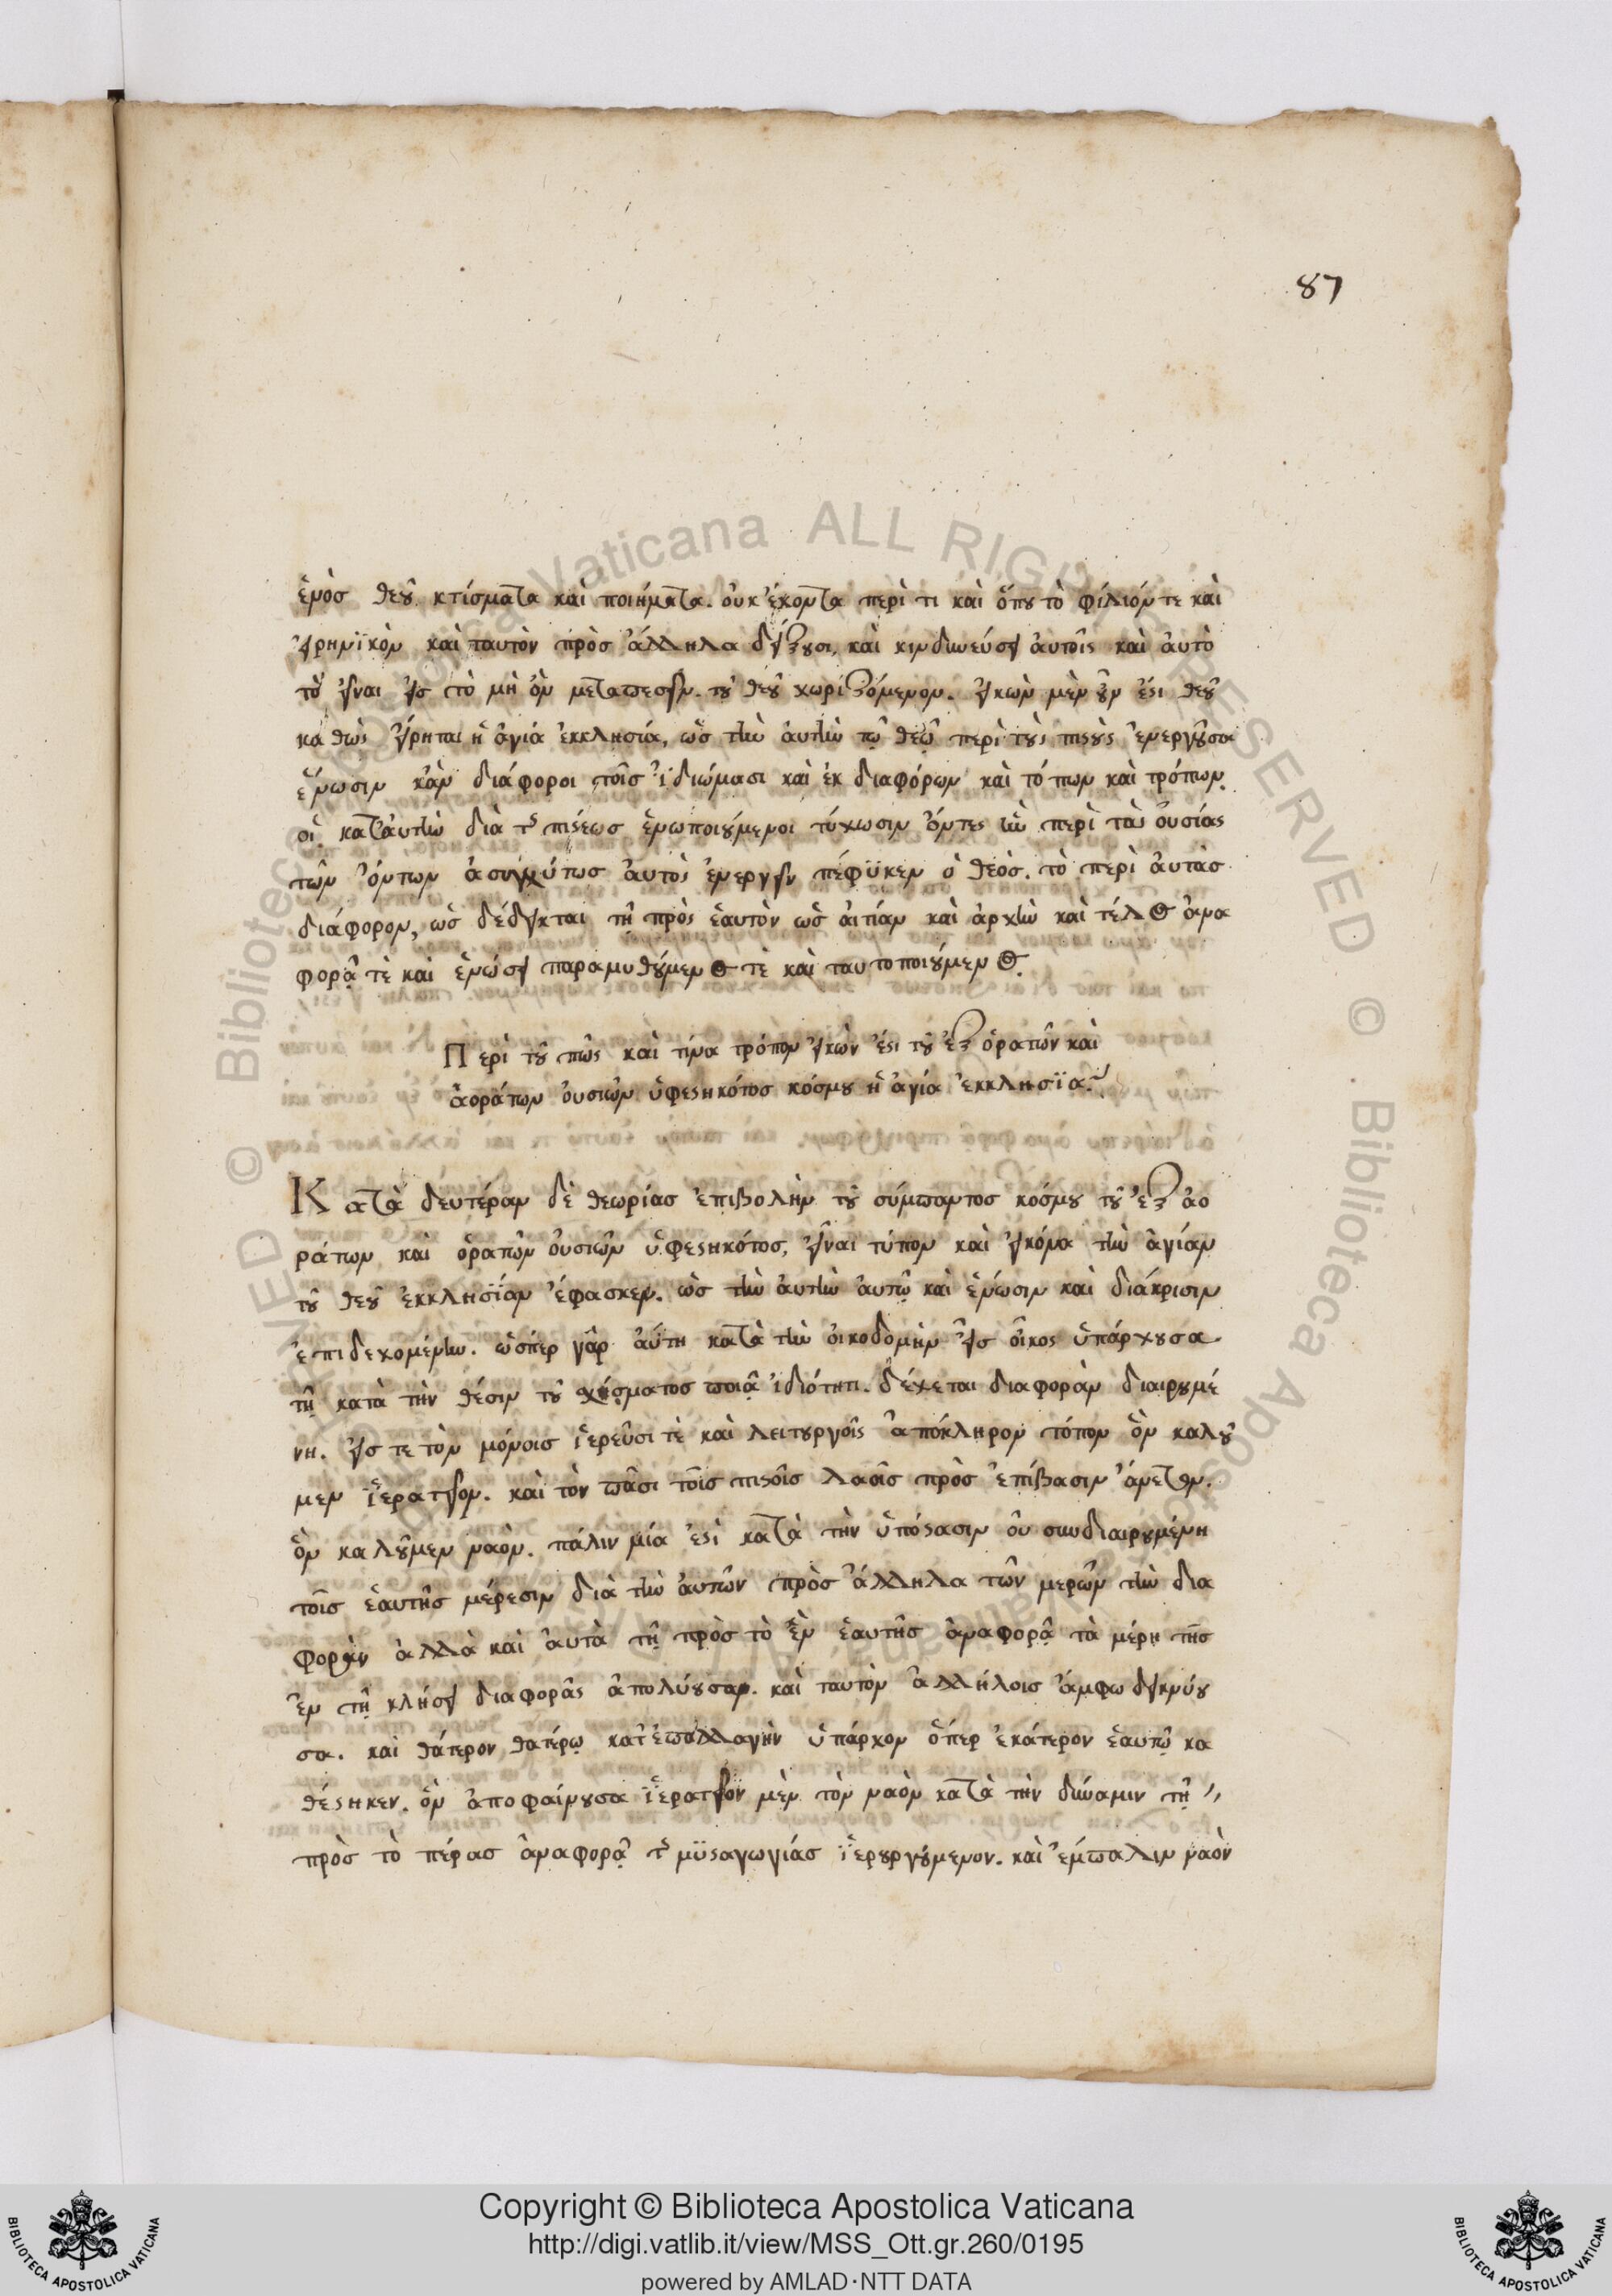 87
ἑνὸς θεοῦ κτίσματα καὶ ποιήματα. οὐκ ἔχοντα περὶ τι καὶ ὅπου τὸ φίλιόν τε καὶ
εἰρηνϊκὸν καὶ ταυτὸν πρὸς ἄλληλα δείξουσι, καὶ κινδυνεύσει ἀυτοῖς καὶ ἀυτὸ
τὸ εἶναι εἰς τὸ μὴ ὂν μεταπεσεῖν. τοῦ θεοῦ χωριζόμενον. εἰκὼν μὲν οὖν ἐστι θεοῦ
καθὼς εἴρηται ἡ ἁγιά ἐκκλησιά, ὡς τὴν ἀυτὴν τῷ θεῷ περὶ τοὺς πιστοὺς ἐνεργοῦσα
ἕνωσιν κἂν διάφοροι τοῖς ἰδιώμασι καὶ ἐκ διαφόρων καὶ τόπων καὶ τρόπων.
οἱ κατ' ἀυτὴν διὰ τῆς πίστεως ἑνωποιούμενοι τύχωσιν ὄντες ἣν περὶ τὰς οὐσίας
τῶν ὄντων ἀσυγχύτως ἀυτὸς ἐνεργεῖν πέφϋκεν ὁ θεὸς. τὸ περὶ ἀυτὰς
διάφορον, ὡς δέδεικται τῇ πρὸς ἑαυτὸν ὡς ἀιτίαν καὶ ἀρχὴν καὶ τέλος ἀνα
φορᾷ τὲ καὶ ἑνώσει παραμυθούμενος τὲ καὶ ταυτοποιούμενος.
Περὶ τοῦ πῶς καὶ τίνα τρόπον εἰκὼν ἐστι τοῦ ἐξ ὁρατῶν καὶ
ἀοράτων ὀυσιῶν ὑφεστηκότος κόσμου ἡ ἁγία ἐκκλησϊα.
Κατὰ δευτέραν δὲ θεωρίας ἐπιβολὴν τοῦ σύμπαντος κοσμου τοῦ ἐξ ἀο
ράτων καὶ ὁρατῶν ὀυσιῶν ὑφεστηκότος, εἶναι τύπον καὶ εἰκόνα τὴν ἁγίαν
τοῦ θεοῦ ἐκκλησϊάν ἔφασκεν. ὡς τὴν ἀυτὴν ἀυτῷ καὶ ἕνωσιν καὶ διάκρισιν
ἐπιδεχομένην. ὥσπερ γὰρ ἀύτη κατὰ τὴν ὀικοδομὴν εἷς ὀῖκος ὑπάρχουσα
τῇ κατὰ τὴν θέσιν τοῦ σχήσματος ποιᾷ ἰδιότητι. δέχεται διαφορὰν διαιρουμέ
νη. εἴς τε τὸν μόνοις ἱερεῦσι τὲ καὶ λειτουργοῖς ἀπόκληρον τόπον ὃν καλοῦ
μεν ἱερατεῖον. καὶ τὸν πᾶσι τοῖς πιστοῖς λαοῖς πρὸς ἐπίβασιν ἄνετον.
ὃν καλοῦμεν ναὸν. πάλιν μία ἐστὶ κατὰ τὴν ὑπόστασιν οὐ συνδιαιρουμένη
τοῖς ἑαυτῆς μέρεσιν διὰ τὴν ἀυτῶν πρὸς ἄλληλα τῶν μερῶν τὴν δια
φορὰν ἀλλὰ καὶ ἀυτὰ τῇ πρὸς τὸ ἓν ἑαυτῆς ἀναφορᾷ τὰ μέρη τῆς
ἐν τῇ κλήσει διαφορᾶς ἀπολύουσαν. καὶ ταυτὸν ἀλλήλοις ἄμφω δεικνύου
σα. καὶ θάτερον θατέρῳ κατ' ἐπαλλαγὴν ὑπάρχον ὅπερ ἑκάτερον ἑαυτῷ κα
θέστηκεν. ὃν ἀποφαίνουσα ἱερατεῖον μὲν τὸν ναὸν κατὰ τὴν δύναμιν τῇ
πρὸς τὸ πέρας ἀναφορᾷ τῆς μϋσταγωγιάς ἱερουργούμενον. καὶ ἔμπαλιν ναὸν
Copyright © Biblioteca Apostolica Vaticana
http://digi.vatlib.it/view/MSS_Ott.gr.260/0195
powered by AMLAD·NTT DATA